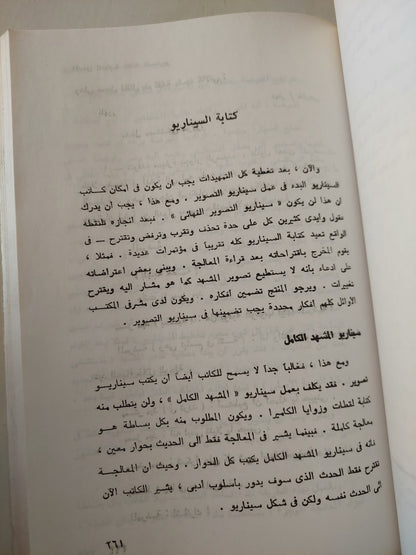 كتابة السيناريو
والآن ، بعد تغطية كل التمهيدات يجب أن يكون فى امكان كاتب
السيناريو البدء فى عمل سيناريو التصوير . ومع هذا ، يجب أن يدرك
ان هذا لن يكون « سيناريو التصوير النهائى » . فبعد انجازه تلتقطه
عقول وأيدى كثيرين كل على حدة تحذف وتقرب وترفض وتقترح — فى
الواقع تعيد كتابة السيناريو كله تقريبا فى مؤتمرات عديدة . فمثلا ،
يقوم المخرج باقتراحاته بعد قراءة المعالجة . ويبنى بعض اعتراضاته
على ادعاء بأنه لا يستطيع تصوير المشهد كما هو مشار اليه ويقترح
تغييرات . ويرجو المنتج تضمين أفكاره . ويكون لدى مشرفى المكتب
الأوائل كلهم أفكار محددة يجب تضمينها فى سيناريو التصوير .
سيناريو المشهد الكامل
ومع هذا ، فغالبا جدا لا يسمح للكاتب أيضا أن يكتب سيناريو
تصوير . فقد يكلف بعمل سيناريو « المشهد الكامل » ، ولن يتطلب منه
كتابة لقطات وزوايا الكاميرا . ويكون المطلوب منه بكل بساطة هو
معالجة كاملة . فبينما يشير فى المعالجة فقط الى الحديث بحوار معين ،
فانه فى سيناريو المشهد الكامل يكتب كل الحوار . وحيث ان المعالجة
تقترح فقط الحدث الذى سوف يدور بأسلوب أدبى ، يشير الكاتب الآن
الى الحدث نفسه ولكن فى شكل سيناريو .
٢٦١